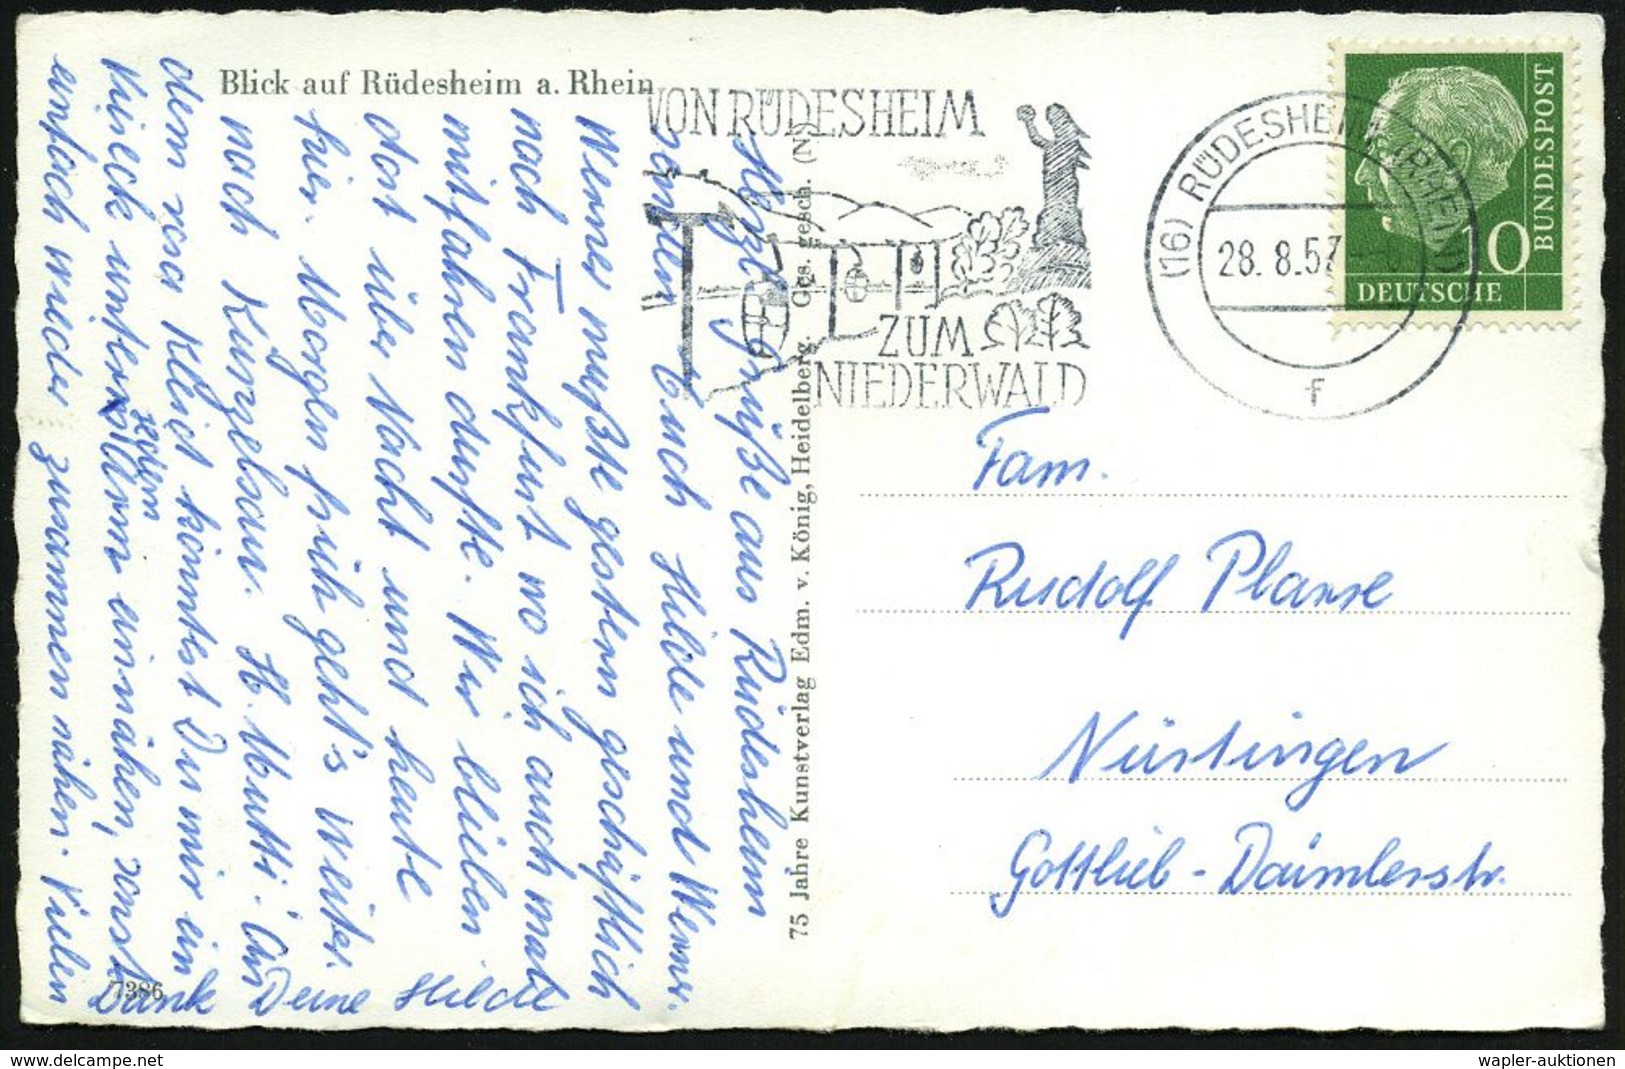 Blick auf Rüdesheim a. Rhein
VON RÜDESHEIM
ZUM
NIEDERWALD
(16) RÜDESHEIM (RHEIN)
28. 8. 57
f
10
DEUTSCHE
BUNDESPOST
75 Jahre Kunstverlag Edm. v. König, Heidelberg. Ges. gesch. (N)
7386
Herzl. Grüße aus Rüdesheim
senden Euch Hilde und Werner.
Werner mußte gestern geschäftlich
nach Frankfurt wo ich auch mal
mitfahren durfte. Wir blieben
dort über Nacht und heute
hier. Morgen früh geht's weiter
nach Künzelsau. H. Mutti! An
dem rosa Kleid könntest Du mir ein
Stück unterm Arm einnähen, sonst
einfach wieder zusammen nähen. Vielen
Dank Deine Hilde
Fam.
Rudolf Planse
Nürtingen
Gottlieb-Daimlerstr.
wapler-auktionen